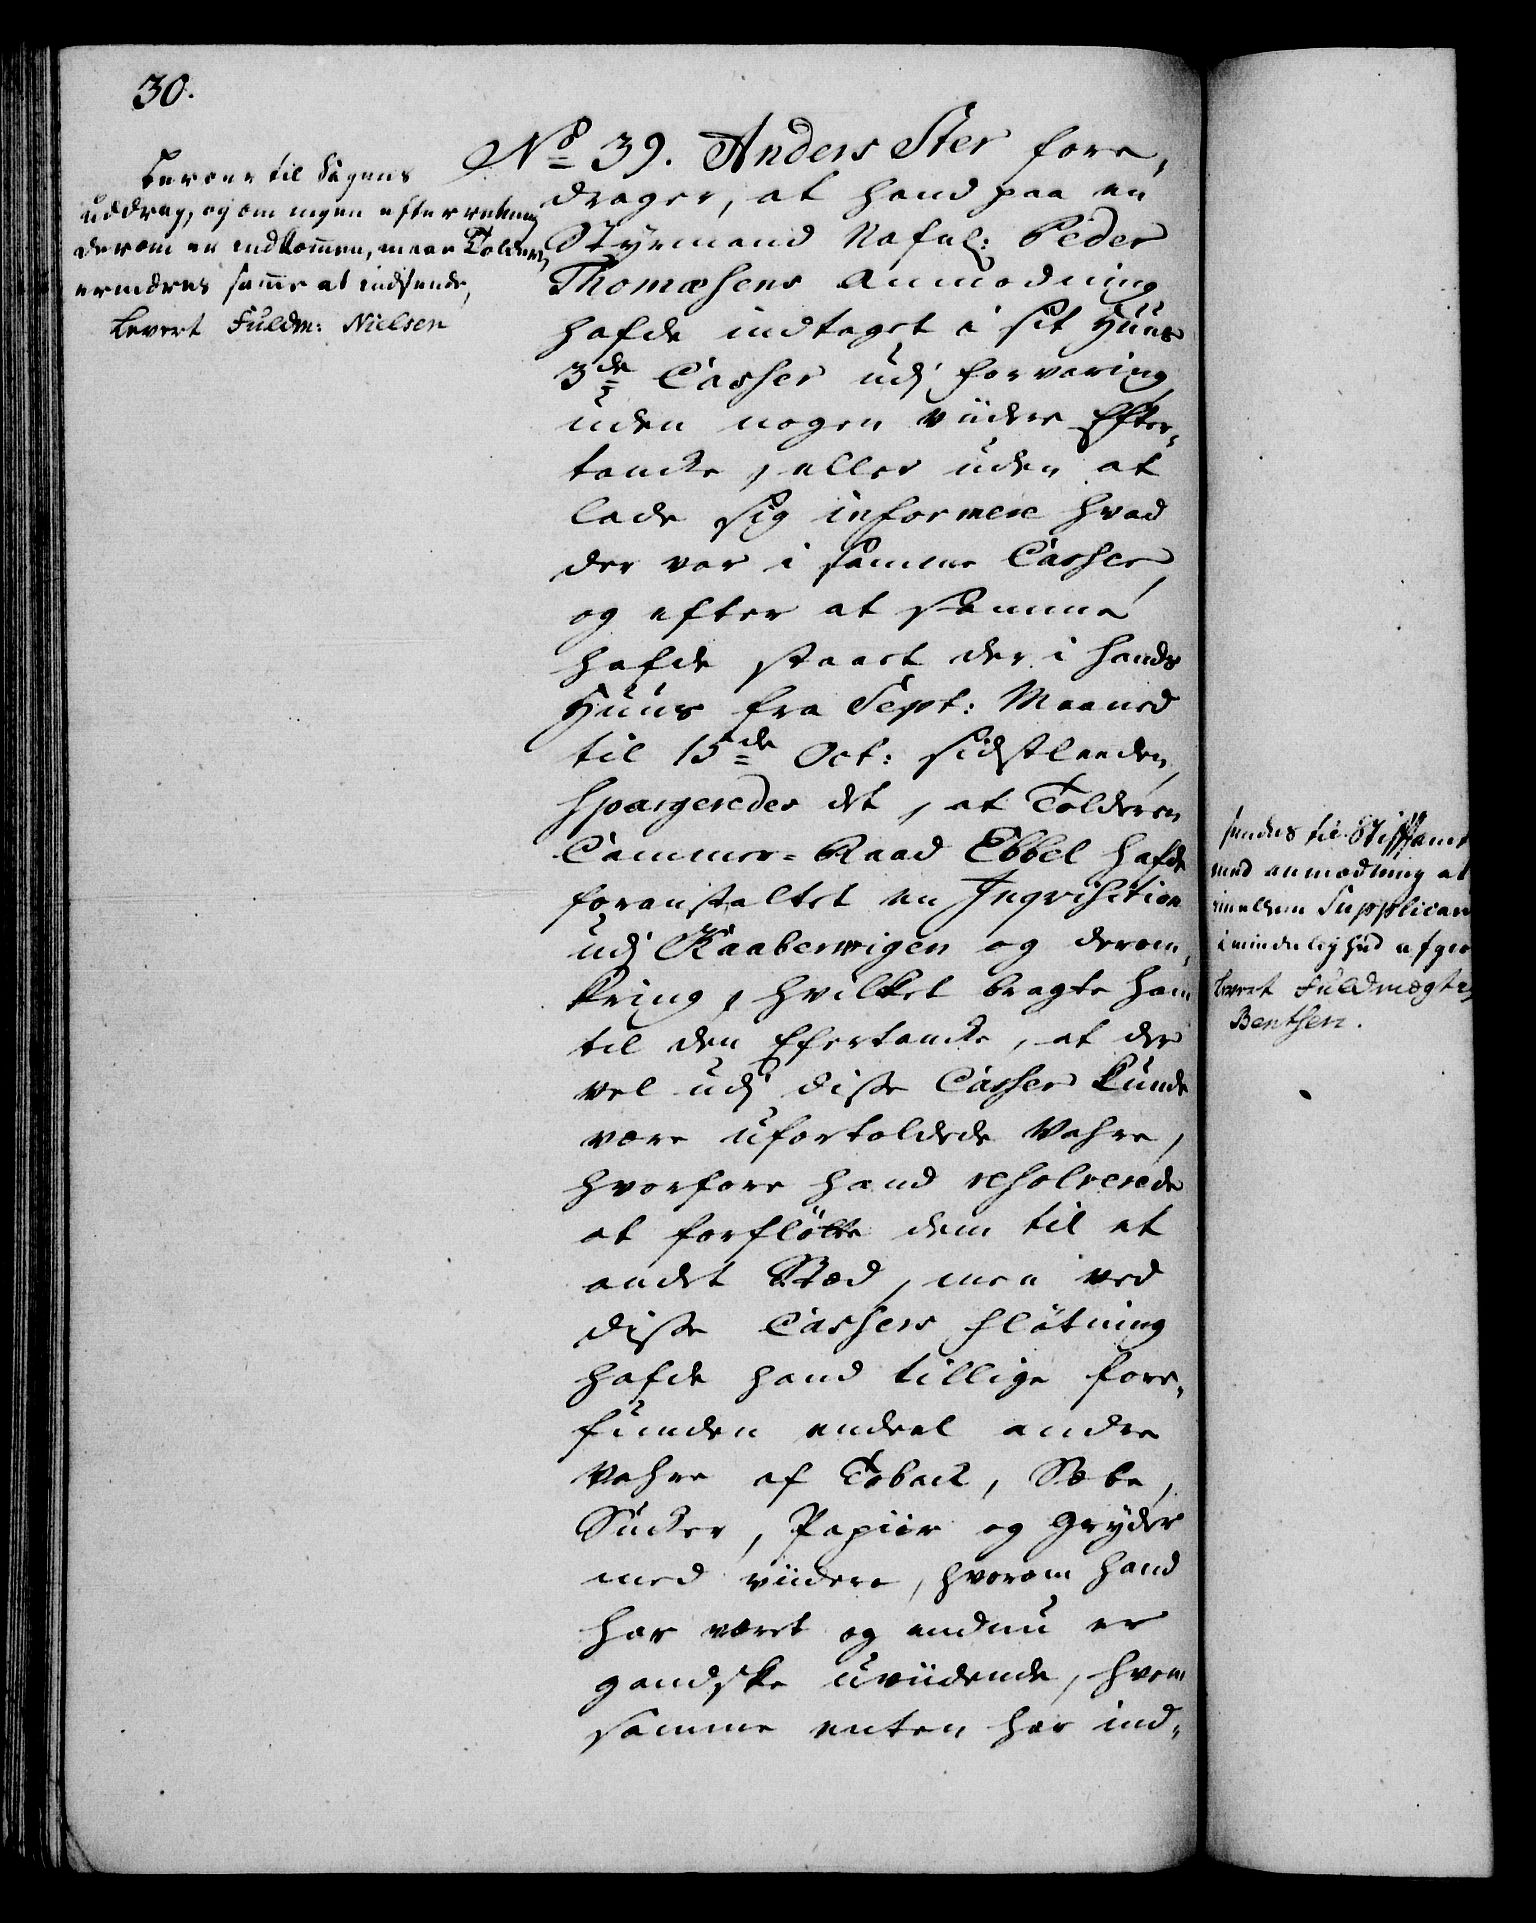 30.
beroer til Sagens
uddrag, og om ingen efterretning
derom er indkommen, maae Tolderen
erindres samme at indsende,
Levert Fuldm: Nielsen
No 39. Anders Ster fore,
drager, at hand paa en
Styrmand Nafnl: Peder
Thomæsens Anmodning
hafde indtaget i sit Huus
3de Casser udj forvaring
uden nogen viidere Efter,
tancke, eller uden at
lade sig informere hvad
der var i samme Casser,
og efter at samme
hafde staaet der i hands
Huus fra Sept: Maaned
til 15de Oct: sidstleeden,
spargeredes det, at Tolderen
Cammer-Raad Ebbel hafde
foranstaltet en Inqvisition
udj Kaaberwigen og derom,
kring, hvilket bragte ham
til den Eftertancke, at der
vel udj disse Casser kunde
være ufortoldede Vahre,
hvorfore hand resolverede
at forflötte dem til et
andet Stæd, men ved
disse Cassers flötning
hafde hand tillige fore,
funden endeel andre
Vahre af Toback, Sæbe,
Sucker, Papiir og Gryder
med viidere, hvorom hand
har været og endnu er
gandske uviidende, hvem
samme enten har ind,
sendes til Stiftamt
med anmodning at
imellem Supplican
i mindelighed afgiø
Levert Fuldmægtig
Bentsen.